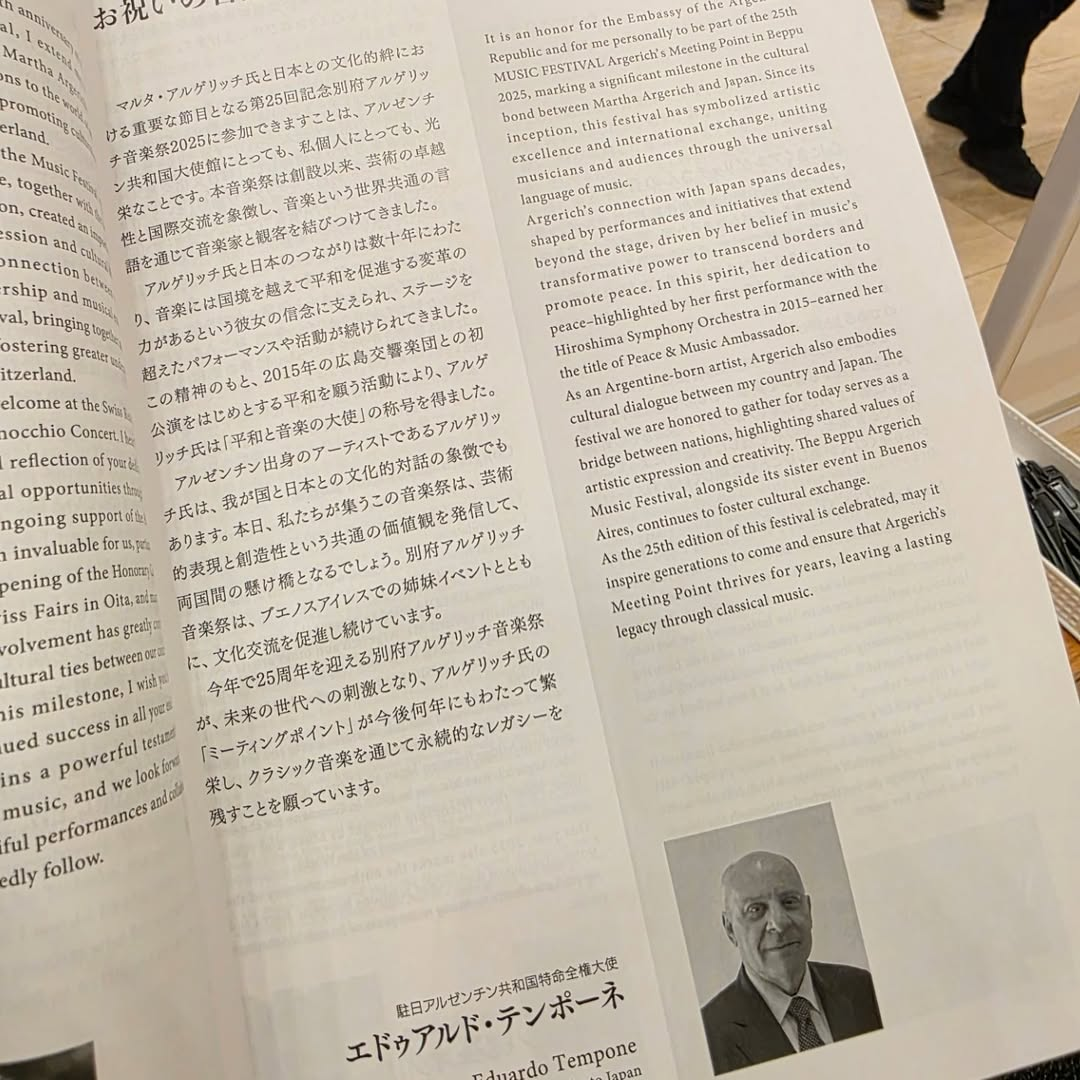 al, I extend
Martha
ons to the
promoting
erland.
the Music
e, together with
on, created an
ession and
onnection
ership and
val, bringing
fostering greater
itzerland.
elcome at the Swiss
nocchio Concert. I
l reflection of your
al opportunities
ngoing support of
n invaluable for us,
pening of the
iss Fairs in Oita, and
volvement has greatly
ultural ties between our
his milestone, I wish
ued success in all your
ins a powerful
music, and we look
iful performances and
edly follow.
お祝いの
マルタ・アルゲリッチ氏と日本との文化的絆にお
ける重要な節目となる第25回記念別府アルゲリッ
チ音楽祭2025に参加できますことは、アルゼンチ
ン共和国大使館にとっても、私個人にとっても、光
栄なことです。本音楽祭は創設以来、芸術の卓越
性と国際交流を象徴し、音楽という世界共通の言
語を通じて音楽家と観客を結びつけてきました。
アルゲリッチ氏と日本のつながりは数十年にわた
り、音楽には国境を越えて平和を促進する変革の
力があるという彼女の信念に支えられ、ステージを
超えたパフォーマンスや活動が続けられてきました。
この精神のもと、2015年の広島交響楽団との初
公演をはじめとする平和を願う活動により、アルゲ
リッチ氏は「平和と音楽の大使」の称号を得ました。
アルゼンチン出身のアーティストであるアルゲリッ
チ氏は、我が国と日本との文化的対話の象徴でも
あります。本日、私たちが集うこの音楽祭は、芸術
的表現と創造性という共通の価値観を発信して、
両国間の懸け橋となるでしょう。別府アルゲリッチ
音楽祭は、ブエノスアイレスでの姉妹イベントととも
に、文化交流を促進し続けています。
今年で25周年を迎える別府アルゲリッチ音楽祭
が、未来の世代への刺激となり、アルゲリッチ氏の
「ミーティングポイント」が今後何年にもわたって繁
栄し、クラシック音楽を通じて永続的なレガシーを
残すことを願っています。
It is an honor for the Embassy of the
Republic and for me personally to be part of the 25th
MUSIC FESTIVAL Argerich's Meeting Point in Beppu
2025, marking a significant milestone in the cultural
bond between Martha Argerich and Japan. Since its
inception, this festival has symbolized artistic
excellence and international exchange, uniting
musicians and audiences through the universal
language of music.
Argerich's connection with Japan spans decades,
shaped by performances and initiatives that extend
beyond the stage, driven by her belief in music's
transformative power to transcend borders and
promote peace. In this spirit, her dedication to
peace–highlighted by her first performance with the
Hiroshima Symphony Orchestra in 2015–earned her
the title of Peace & Music Ambassador.
As an Argentine-born artist, Argerich also embodies
cultural dialogue between my country and Japan. The
festival we are honored to gather for today serves as a
bridge between nations, highlighting shared values of
artistic expression and creativity. The Beppu Argerich
Music Festival, alongside its sister event in Buenos
Aires, continues to foster cultural exchange.
As the 25th edition of this festival is celebrated, may it
inspire generations to come and ensure that Argerich's
Meeting Point thrives for years, leaving a lasting
legacy through classical music.
駐日アルゼンチン共和国特命全権大使
エドゥアルド・テンポーネ
Eduardo Tempone
to Japan